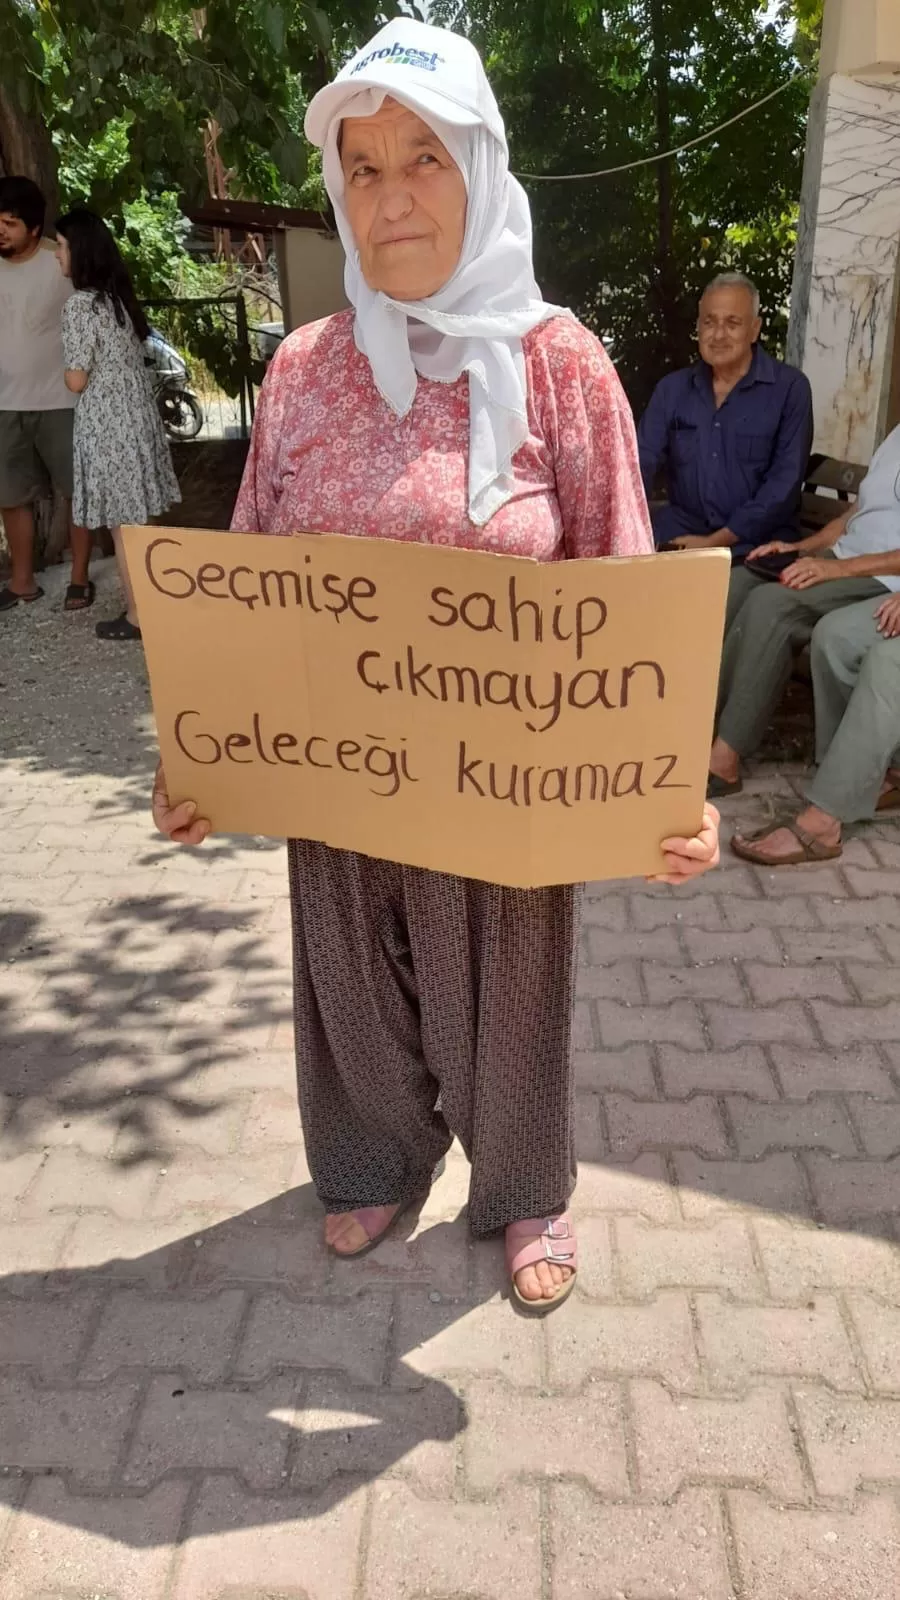 Geçmişe sahip
çıkmayan
Geleceği kuramaz